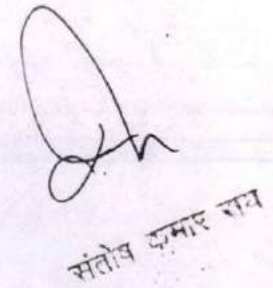 संतोष कुमार राय